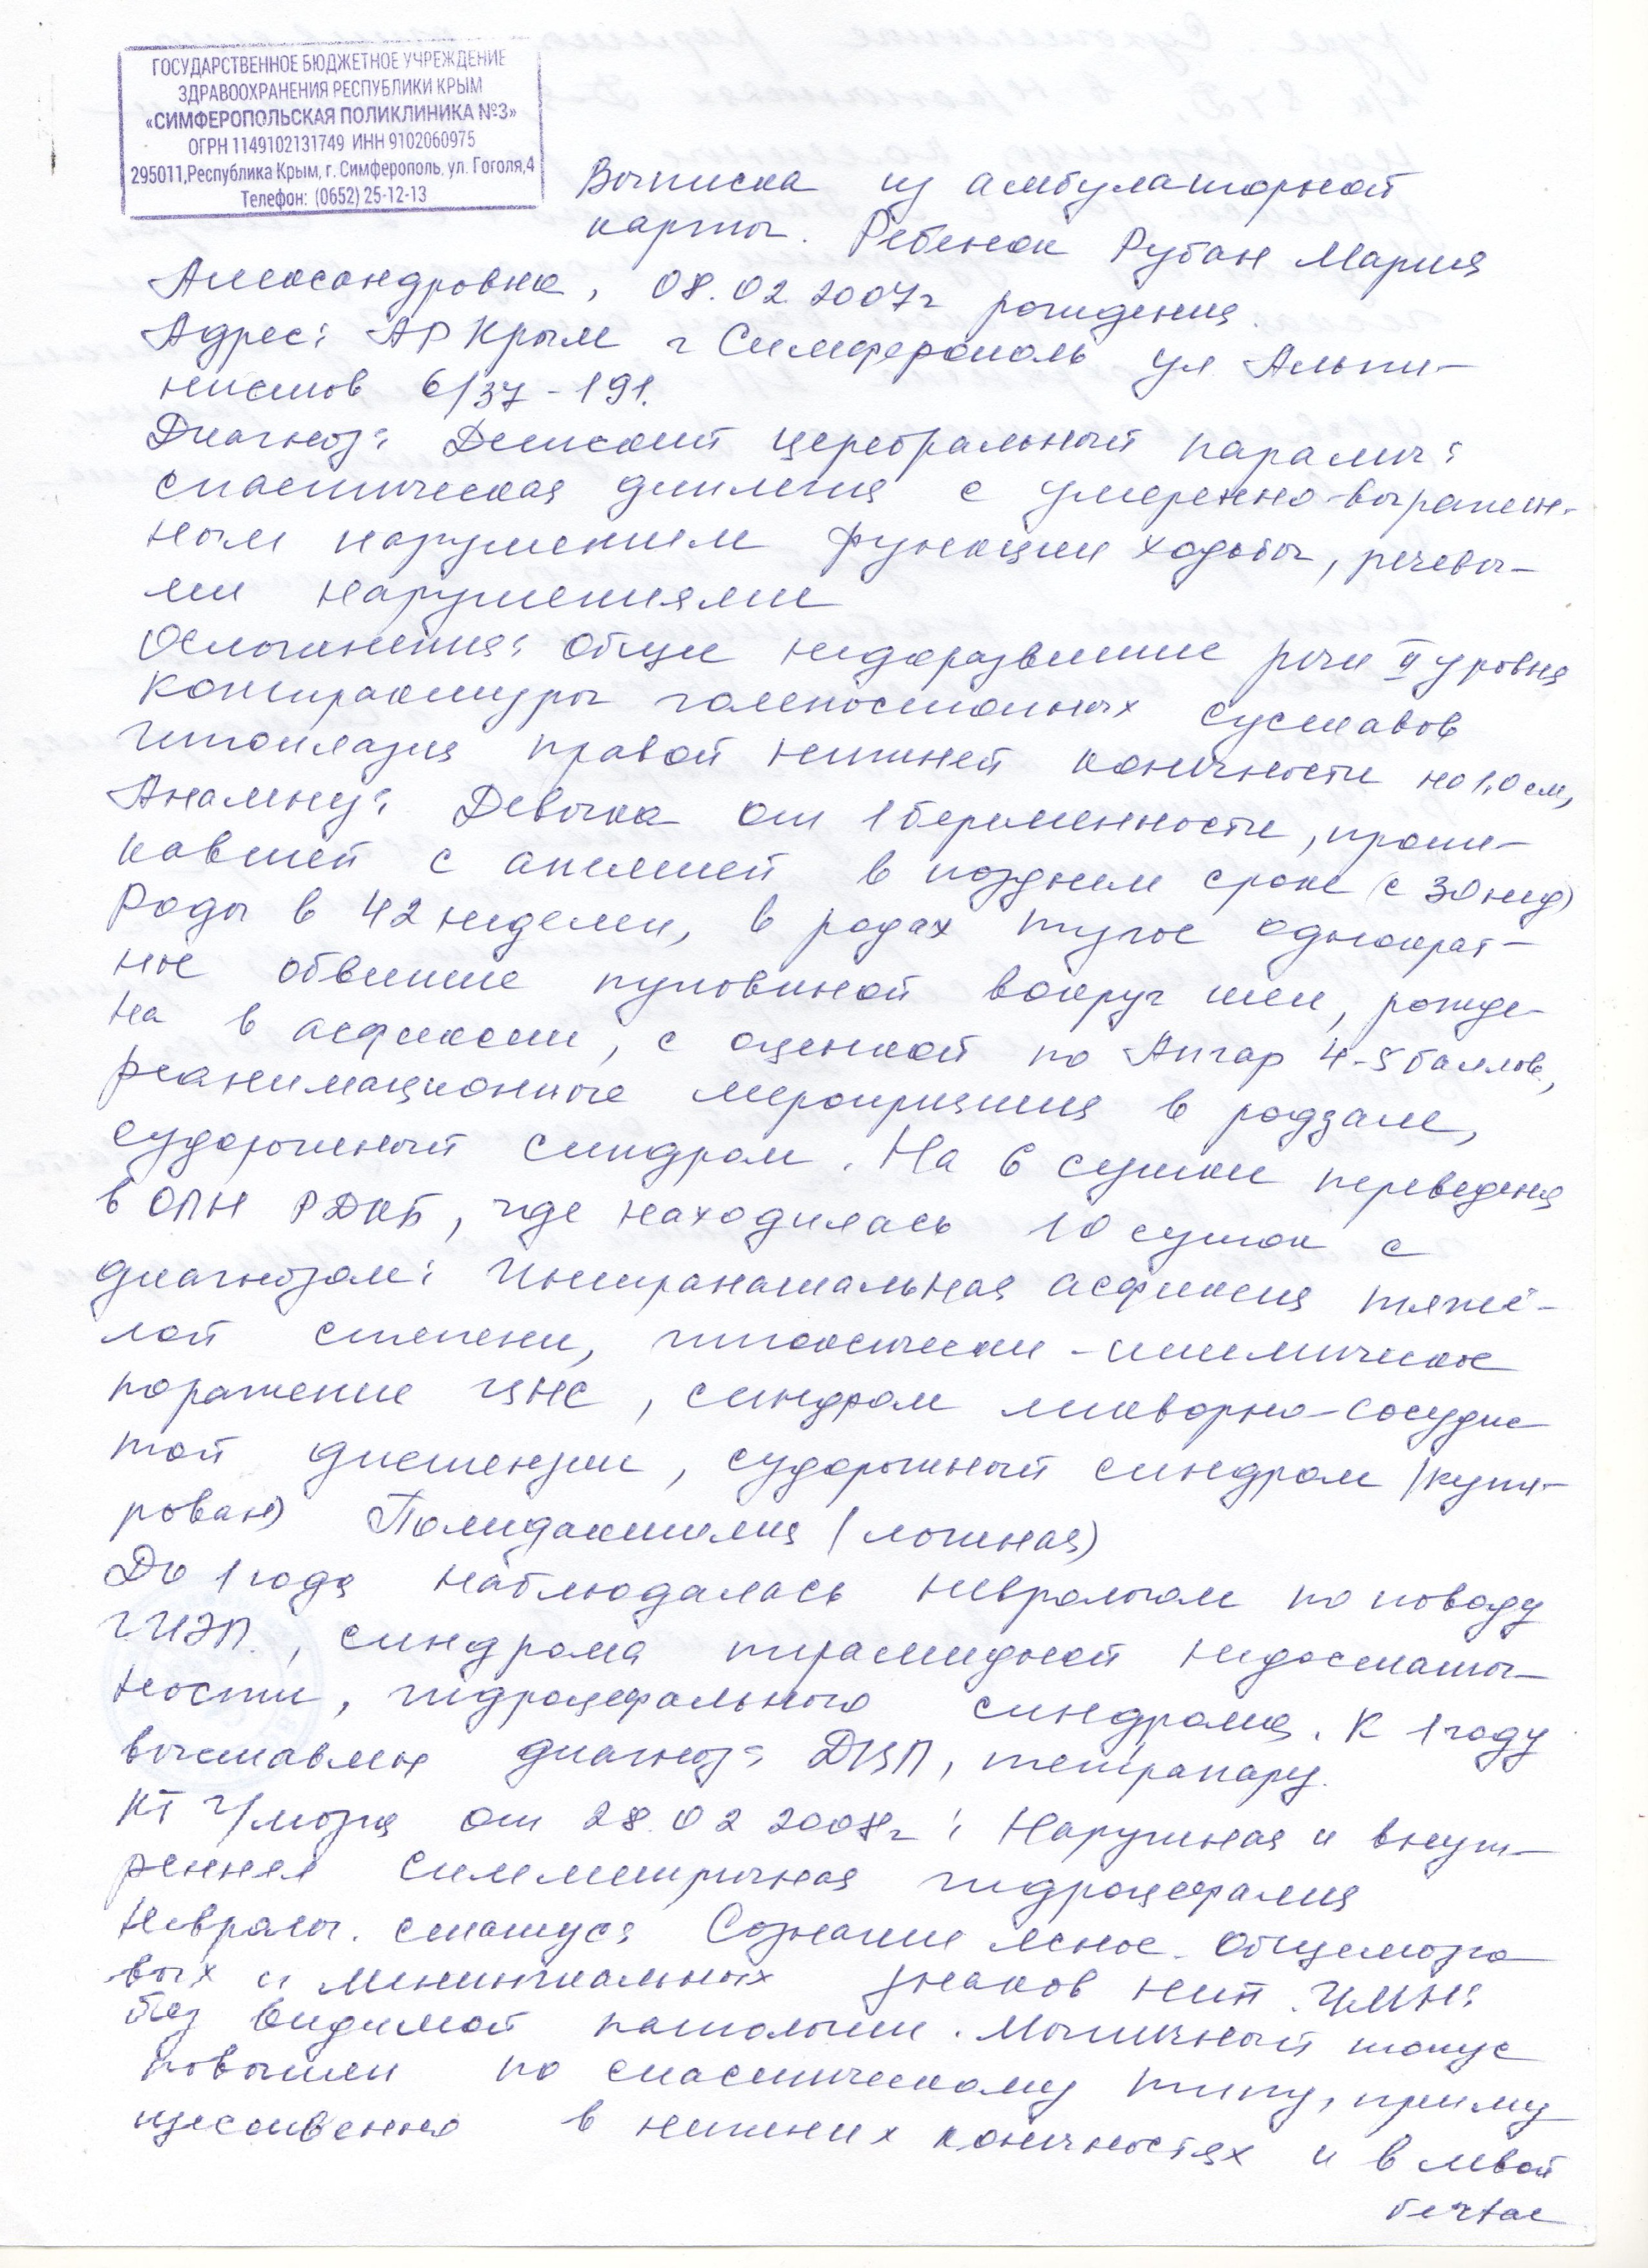 ГОСУДАРСТВЕННОЕ БЮДЖЕТНОЕ УЧРЕЖДЕНИЕ
ЗДРАВООХРАНЕНИЯ РЕСПУБЛИКИ КРЫМ
«СИМФЕРОПОЛЬСКАЯ ПОЛИКЛИНИКА №3»
ОГРН 1149102131749 ИНН 9102060975
295011,Республика Крым, г. Симферополь, ул. Гоголя,4
Телефон: (0652) 25-12-13
Выписка из амбулаторной
карты. Ребенок Рубан Мария
Александровна, 08.02.2007г рождения.
Адрес: АР Крым г Симферополь ул Альпи-
нистов 6/37-191.
Диагноз: Детский церебральный паралич:
спастическая диплегия с умеренно-выражен-
ным нарушением функции ходьбы, речевы-
ми нарушениями
Осложнения: Общее недоразвитие речи II уровня
контрактуры голеностопных суставов
Гипоплазия правой нижней конечности на 1,0 см,
Анамнез: Девочка от 1 беременности, проте-
кавшей с анемией в позднем сроке (с 30 нед)
Роды в 42 недели, в родах тугое однократ-
ное обвитие пуповиной вокруг шеи, рожде-
на в асфиксии, с оценкой по Апгар 4-5 баллов,
реанимационные мероприятия в родзале,
судорожный синдром. На 6 сутки переведена
в ОПН РДКБ, где находилась 10 суток с
диагнозом: Интранатальная асфиксия тяжё-
лой степени, гипоксически-ишемическое
поражение ЦНС, синдром ликворно-сосудис
той дистензии, судорожный синдром (купи-
рован) Полидактилия (ложная)
До 1 года наблюдалась неврологом по поводу
ГИЭП., синдрома пирамидной недостаточ-
ности, гидроцефального синдрома. К 1 году
выставлен диагноз: ДЦП, тетрапарез.
КТ г/мозга от 28.02 2008г: Наружная и внут-
ренняя симметричная гидроцефалия
Невролог. статус: Сознание ясное. Общемозго
вых и менингиальных знаков нет. ЧМН:
без видимой патологии. Мышечный тонус
повышен по спастическому типу, преиму
щественно в нижних конечностях и в левой